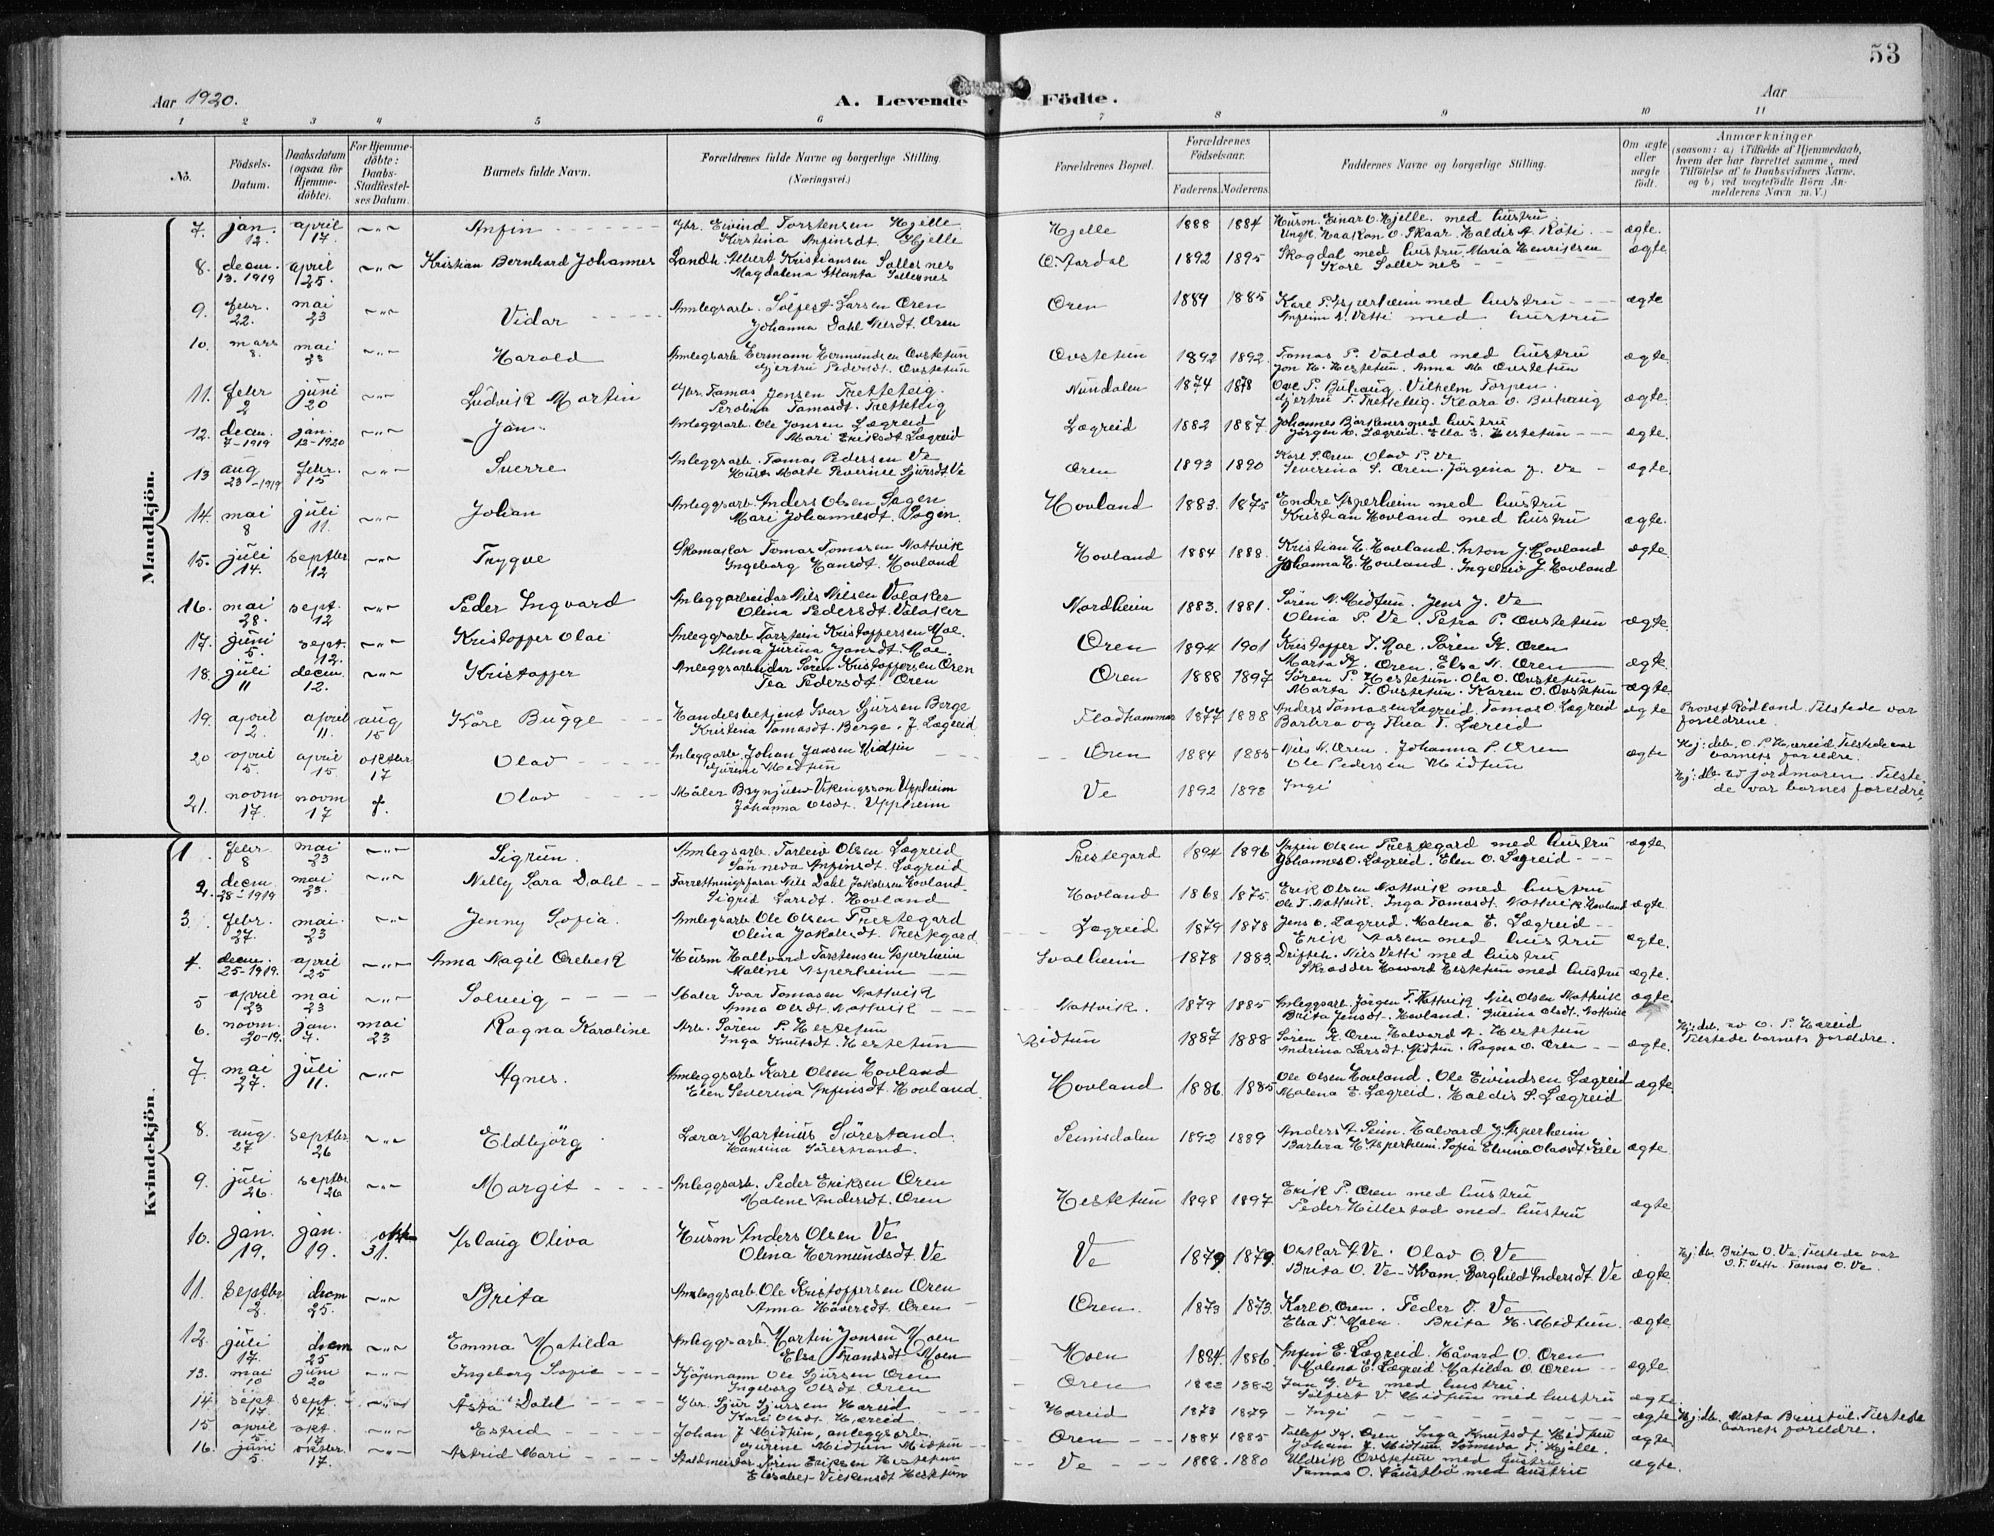 53
Aar 1920.
A. Levende Födte.
Aar
1 2 3 4 5 6 7 8 9 10 11
No.
Födsels-Datum.
Daabsdatum (ogsaa for Hjemmedöbte).
For Hjemmedöbte: Daabs-Stadfæstelses Datum.
Barnets fulde Navn.
Forældrenes fulde Navne og borgerlige Stilling.
(Næringsvei.)
Forældrenes Bopæl.
Forældrenes Födselsaar.
Faderens. Moderens.
Faddernes Navne og borgerlige Stilling.
Om ægte eller uægte födt.
Anmærkninger
(saasom: a) i Tilfælde af Hjemmedaab, hvem der har forrettet samme, med Tilföielse af to Daabsvidners Navne, og b) ved uægtefödte Börn Anmelderens Navn m. V.)
Mandkjön.
7. jan. 12. april 17 Anfin Gbr. Eivind Torstensen Hjelle Kirstina Anfinsdt. Hjelle Hjelle 1888 1884 Husm. Einar O. Hjelle med hustru Ungk. Haakon O. Skaar Haldis A. ægte.
8. decm. 13. 1919 april 25. Kristian Bernhard Johannes Landh. Albert Kristiansen Sollesnes Magdalena Sollesnes O. Aardal 1892 1895 Skogdal med hustru Maria Henriksen Kare Sollesnes ægte
9. febr. 22. mai 23 Vidar Anlegsarb. Sölfest Larsen Oren Johanna Dahl Nilsdt. Oren Oren 1889 1885 Kare P. Asperheim med hustru Anfinn N. Vetti med hustru ægte
10. mars 8. mai 23 Harald Anlegsarb. Hermann Hermundsen Ovstetun Gjertru Pedersdt. Ovstetun Ovstetun 1892 1892 Tomas P. Valdal med hustru Jon H. Hestetun. Anna M. Ovstetun ægte.
11. febr 2 juni 20 Ludvik Martin Gbr. Tomas Jonsen Tretteteig. Perolina Tomasdt. Tretteteig Nundalen 1874 1878 Ove P. Buhaug. Vilhelm Torpen. Gjertru T. Tretteteig. Klara O. Buhaug ægte.
12. decm. 7-1919 jan. 13-1920 Jan Anleggsarb. Ole Jonsen Lægreid Mari Eriksdt. Lægreid Lægreid 1882 1887 Johannes Barsnes med hustru Jörgen O. Lægreid. Ella E. Hestetun ægte.
13 aug 23-1919 febr. 15 Sverre Anleggsarb. Tomas Pedersen Ve Hust. Marte Severine Sjursdt. Ve Oren 1893 1890 Kare S. Oren. Olav P. Ve Severina S. Oren. Jörgina J. Ve ægte.
14. mai 8 juli 11. Johan Anleggsarb. Anders Olsen Sagen Mari Johannesdt. Sagen. Hovland 1883. 1875 Endre Asperheim med hustru Kristian Hovland med hustru ægte.
15. juli 14. septbr 12 Trygve Skomaker Tomas Tomasen Nattvik Ingeborg Hansdt. Hovland Hovland 1884 1888. Kristian H. Hovland. Anton J. Hovland Johanna H. Hovland. Ingebrig J. Hovland ægte.
16. mai 28. sept. 12 Peder Ingvard Anleggarbeidar Nils Nilsen Volaker Olina Pedersdt. Volaker Nordheim 1883. 1881. Sören N. Midtun. Jens J. Ve Olina P. Ve. Petra P. Ovstetun ægte.
17. juni 5. sept. 12. Kristoffer Olai Anleggsarb. Torstein Kristoffersen Moe. Alma Jurina Jonsdt. Moe. Oren 1894 1901 Kristoffer T. Moe. Sören K. Oren Marta K. Oren. Elsa N. Oren ægte.
18. juli 11 decm. 12. Kristoffer Anleggsarbeidar Sören Kristoffersen Oren Tea Pedersdt. Oren Oren 1888 1897 Sören P. Hestetun. Ola O. Ovstetun Marta T. Ovstetun. Karen O. Ovstetun ægte.
19. april 2. april 11. aug 15 Kåre Bugge Handelsbetjent Ivar Sjursen Berge Kristina Tomasdt. Berge. f. Lægreid Fladhammer 1877 1888 Anders Tomasen Lægreid. Tomas O. Lægreid Barbra og Thea T. Læreid ægte Provst Rödland. Tilstede var foreldrene.
20 april 5. april 15 oktbr 17 Olav Anleggarb. Johan Jonsen Midtun Gurine Midtun Oren 1884 1885 Nils N. Oren. Johanna P. Oren Ole Pedersen Midtun ægte Hj: döb. O. P. Hæreid. Tilstede var barnets foreldre.
21. novm 17. novm 17 f. Olav Måler Brynjulv Vikingsson Uppheim Johanna Olsdt. Uppheim Ve 1892 1898 Ingi Hj: db. av jordmoren. Tilstede var barnes foreldre.
Kvindekjön.
1. febr 8 mai 23 Sigrun. Anlegsarb. Torleiv Olsen Lægreid Sönneva Anfinsdt. Lægreid Prestegard 1894 1896 Anfin Olsen Prestegard med hustru Johannes O. Lægreid. Elen O. Lægreid ægte.
2. decm. 28-1919 mai 23. Nelly Sara Dahl Forretningsfører Nils Dahl Jakobsen Hovland Sigrid Larsdt. Hovland Hovland 1868 1875 Erik Olsen Nattvik med hustru Ole T. Nattvik. Inga Tomasdt. Nattvik Hovland ægte.
3. febr. 27. mai. 23 Jenny Sofia. Anlegsarb. Ole Olsen Prestegard Olina Jakobsdt. Prestegard Lægreid 1879 1878 Jens O. Lægreid. Malena E. Lægreid Erik Aasen med hustru ægte.
4. decm. 25-1919. april 25 Anna Magil Orebek Husm Hallvard Torstensen Asperheim Malene Asperheim Svalheim 1878 1883. Driftsb. Nils Vetti med hustru Skrædder Haavard Hestetun med hustru ægte.
5 april 23 mai 23 Solveig Maler Ivar Tomasen Nattvik Anna Olsdt. Nattvik Nattvik. 1879 1885 Anleggsarb. Jörgen T. Nattvik. Nils Olsen Nattvik Brita Jensdt. Hovland. Gurina Olsdt. Nattvik ægte
6. novm. 20-19. jan. 4. mai 23 Ragna Karoline Arb. Sören P. Hestetun Inga Knutsdt. Hestetun Midtun 1887 1888 Sören K. Oren. Halvard A. Hestetun Andrina Larsdt. Midtun. Ragna O. Oren ægte. Hj: db. av O. P. Hæreid Tilstede barnets foreldre.
7. mai 27. juli 11. Agnes. Anleggsarb Kare Olsen Hovland Elen Severina Anfinsdt. Hovland. Hovland 1886 1885 Ole Olsen Hovland. Ole Eivindsen Lægreid Malena E. Lægreid. Haldis S. Lægreid ægte.
8. aug. 27 septbr 26 Eldbjörg Lærar Martinus Sörestrand. Hansina Sörestrand. Seimsdalen 1892 1889 Anders A. Seim. Halvard J. Asperheim Barbra H. Asperheim. Sofia Elvina Olavdt. Eile ægte.
9. juli 26. septbr 26 Margit Anleggsarb. Peder Eriksen Oren Malene Andersdt. Oren Hestetun 1898 1897 Erik P. Oren med hustru Peder Hillestad med hustru ægte.
10. jan. 19. jan. 19. okt. 31. Aslaug Oliva Husm Anders Olsen Ve Olina Hermundsdt. Ve Ve 1879 1879. Oskar A. Ve. Olav O. Ve Brita O. Ve. Kvam Borghild Andersdt. Ve ægte. Hj: db. Brita O. Ve. Tilstede var O. T. Vette Tomas O. Ve.
11. Septbr 2. decm 25. Brita Anleggsarb Ole Kristoffersen Oren Anna Håversdt. Oren Oren. 1873 1873. Karl O. Oren. Peder O. Ve Elsa T. Moen. Brita H. Midtun. ægte.
12. juli 17. decm 25 Emma Matilda Anleggsarb. Martin Jonsen Moen Elsa Trondsdt. Moen Moen 1884. 1886. Anfin E. Lægreid. Håvard O. Oren Malena E. Lægreid Matilda O. Oren ægte.
13. mai 10 juni 20 Ingeborg Sofie Kjöpmann Ole Sjursen Oren Ingeborg Olsdt. Oren Oren 1882 1882 Jan G. Ve med hustru. Sölfest V. Midtun med hustru ægte.
14. sept 17 sept. 17. Åsta Dahl Gbr. Sjur Sjursen Hæreid Kari Olsdt. Hæreid Hæreid 1873 1879 Ingi ægte Hj: db. Marta Bunstöl. Tilstede barnets foreldre.
15 april 5 okt. 17 Estrid Johan J Midtun, anleggsarb. Gurene Midtun Midtun Oren 1884 1885 Tollef K. Oren Inga Knutsdt Midtun Johan J. Midtun. Sönneva T. Hjelle. ægte.
16. juni 5 oktbr. 17. Astrid Mari Staldmester Sören Eriksen Hestetun Elisabet Vilkensdt Hestetun Ve 1888. 1880 Uldrik Ovstetun med hustru Tomas O. med hustru ægte.